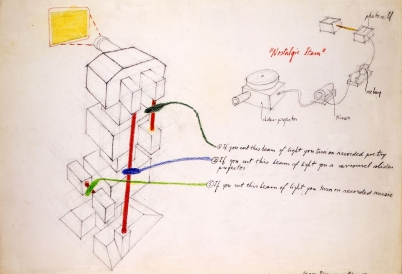 photo cell
"Nostalgic Item"
relay
slide-projector
① If you cut this beam of light you turn on recorded poetry
② If you cut this beam of light you a carrousel slides
projector
③ If you cut this beam of light you turn on recorded music